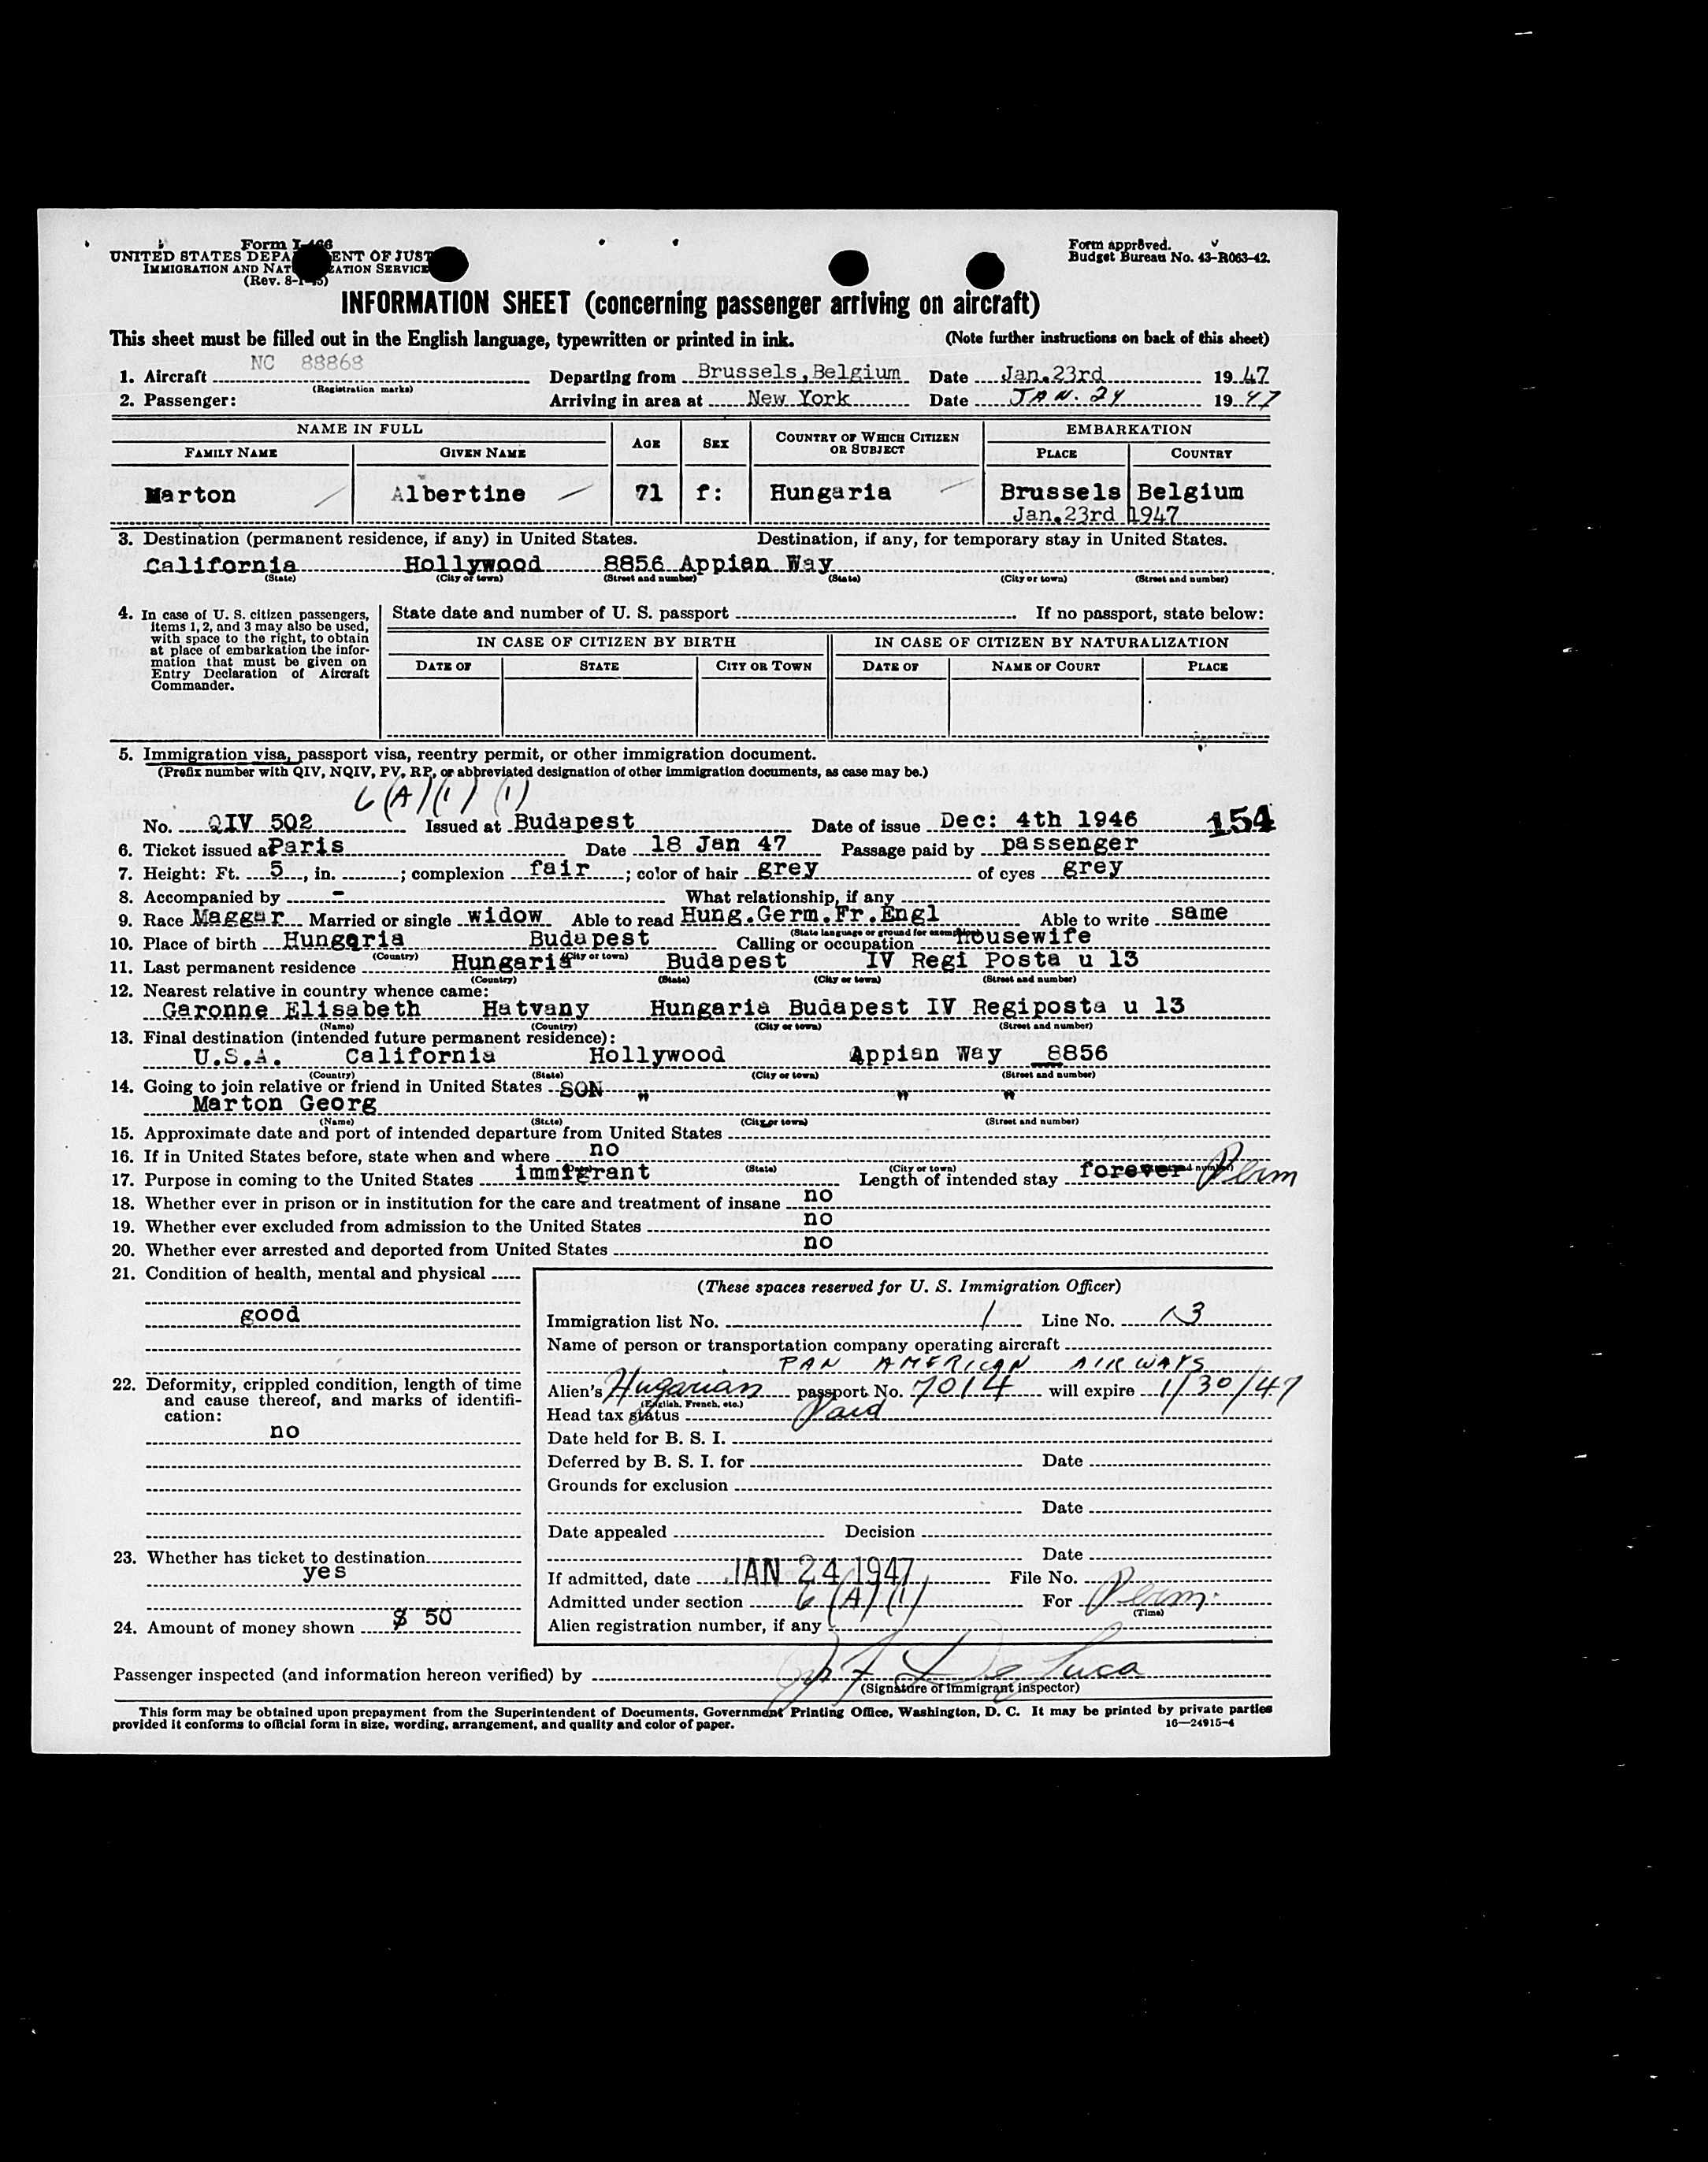 Form I-466
UNITED STATES DEPARTMENT OF JUSTICE
IMMIGRATION AND NATURALIZATION SERVICE
(Rev. 8-1-45)
Form approved.
Budget Bureau No. 43-R063-42.
INFORMATION SHEET (concerning passenger arriving on aircraft)
This sheet must be filled out in the English language, typewritten or printed in ink. (Note further instructions on back of this sheet)
1. Aircraft NC 88868 Departing from Brussels, Belgium Date Jan.23rd 1947
(Registration marks)
2. Passenger: Arriving in area at New York Date JAN. 24 1947
NAME IN FULL AGE SEX COUNTRY OF WHICH CITIZEN OR SUBJECT EMBARKATION
FAMILY NAME GIVEN NAME PLACE COUNTRY
Marton Albertine 71 f: Hungaria Brussels Belgium
Jan.23rd 1947
3. Destination (permanent residence, if any) in United States. Destination, if any, for temporary stay in United States.
California Hollywood 8856 Appian Way
(State) (City or town) (Street and number) (State) (City or town) (Street and number)
4. In case of U. S. citizen passengers,
items 1, 2, and 3 may also be used,
with space to the right, to obtain
at place of embarkation the infor-
mation that must be given on
Entry Declaration of Aircraft
Commander.
State date and number of U. S. passport If no passport, state below:
IN CASE OF CITIZEN BY BIRTH IN CASE OF CITIZEN BY NATURALIZATION
DATE OF STATE CITY OR TOWN DATE OF NAME OF COURT PLACE
5. Immigration visa, passport visa, reentry permit, or other immigration document.
(Prefix number with QIV, NQIV, PV, RP, or abbreviated designation of other immigration documents, as case may be.)
6(A)(1) (1)
No. QIV 502 Issued at Budapest Date of issue Dec: 4th 1946 154
6. Ticket issued at Paris Date 18 Jan 47 Passage paid by passenger
7. Height: Ft. 5, in. ; complexion fair ; color of hair grey of eyes grey
8. Accompanied by - What relationship, if any
9. Race Maggar Married or single widow Able to read Hung.Germ.Fr.Engl Able to write same
(State language or ground for exemption)
10. Place of birth Hungaria Budapest Calling or occupation housewife
(Country) (City or town)
11. Last permanent residence Hungaria Budapest IV Regi Posta u 13
(Country) (State) (City or town) (Street and number)
12. Nearest relative in country whence came:
Garonne Elisabeth Hatvany Hungaria Budapest IV Regiposta u 13
(Name) (Country) (City or town) (Street and number)
13. Final destination (intended future permanent residence):
U.S.A. California Hollywood Appian Way 8856
(Country) (State) (City or town) (Street and number)
14. Going to join relative or friend in United States SON " " "
Marton Georg
(Name) (State) (City or town) (Street and number)
15. Approximate date and port of intended departure from United States
16. If in United States before, state when and where no
(State) (City or town)
17. Purpose in coming to the United States immigrant Length of intended stay forever Perm
18. Whether ever in prison or in institution for the care and treatment of insane no
19. Whether ever excluded from admission to the United States no
20. Whether ever arrested and deported from United States no
21. Condition of health, mental and physical
good
22. Deformity, crippled condition, length of time
and cause thereof, and marks of identifi-
cation:
no
23. Whether has ticket to destination
yes
24. Amount of money shown $ 50
(These spaces reserved for U. S. Immigration Officer)
Immigration list No. 1 Line No. 13
Name of person or transportation company operating aircraft
PAN AMERICAN AIRWAYS
Alien's Hugarian passport No. 7014 will expire 1/30/47
(English, French, etc.)
Head tax status Paid
Date held for B. S. I.
Deferred by B. S. I. for Date
Grounds for exclusion
Date
Date appealed Decision
Date
If admitted, date JAN 24 1947 File No.
Admitted under section 6(A)(1) For Perm.
(Time)
Alien registration number, if any
Passenger inspected (and information hereon verified) by De Luca
(Signature of immigrant inspector)
This form may be obtained upon prepayment from the Superintendent of Documents, Government Printing Office, Washington, D. C. It may be printed by private parties
provided it conforms to official form in size, wording, arrangement, and quality and color of paper. 16—24915-4